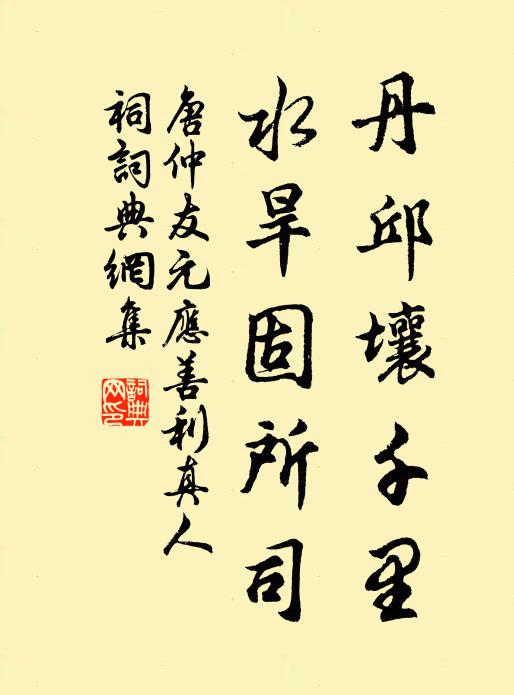 丹邱壤千里
水旱固所司
唐仲友元應善利真人
祠詞典網集
詞典網印